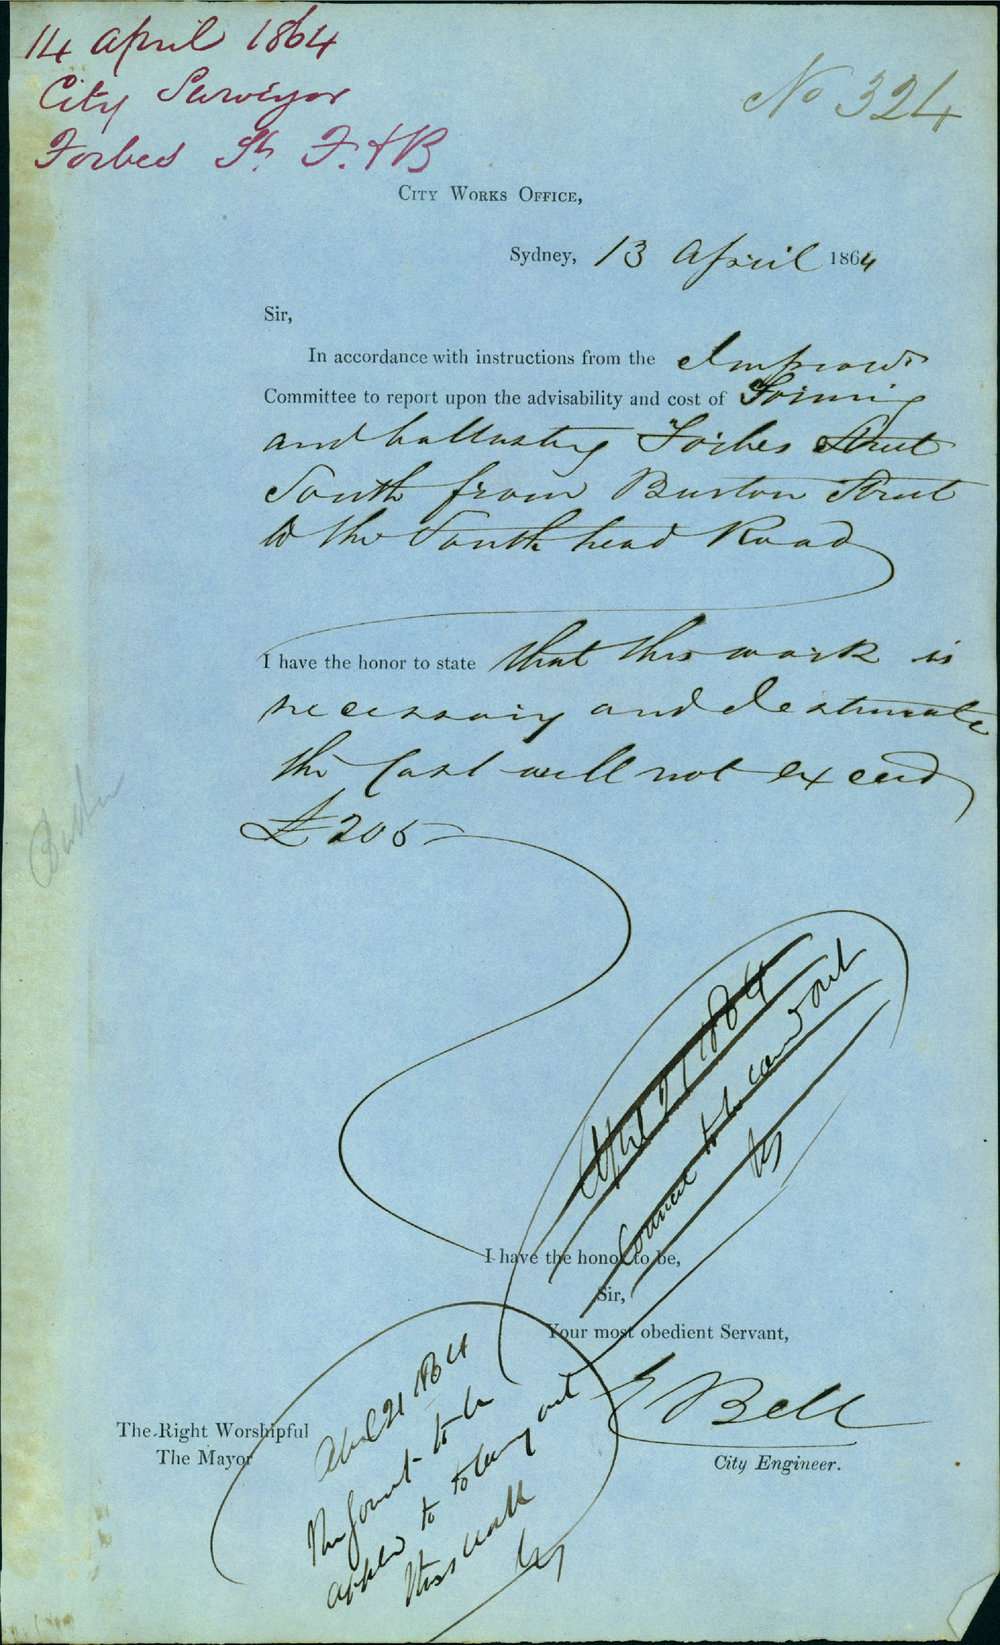 14 April 1864
City Surveyor
Forbes St. F. & B
No 324
CITY WORKS OFFICE,
Sydney, 13 April 1864
Sir,
In accordance with instructions from the Improvt
Committee to report upon the advisability and cost of Forming
and ballasting Forbes Street
South from Burton Street
to the South head Road
I have the honor to state that this work is
necessary and I estimate
the Cost will not exceed
£205
April 21 1864
Council to be carried out
I have the honor to be,
Sir,
Your most obedient Servant,
E Bell
City Engineer.
The Right Worshipful
The Mayor
April 21 1864
The Govmt to be
applied to to carry out
this work